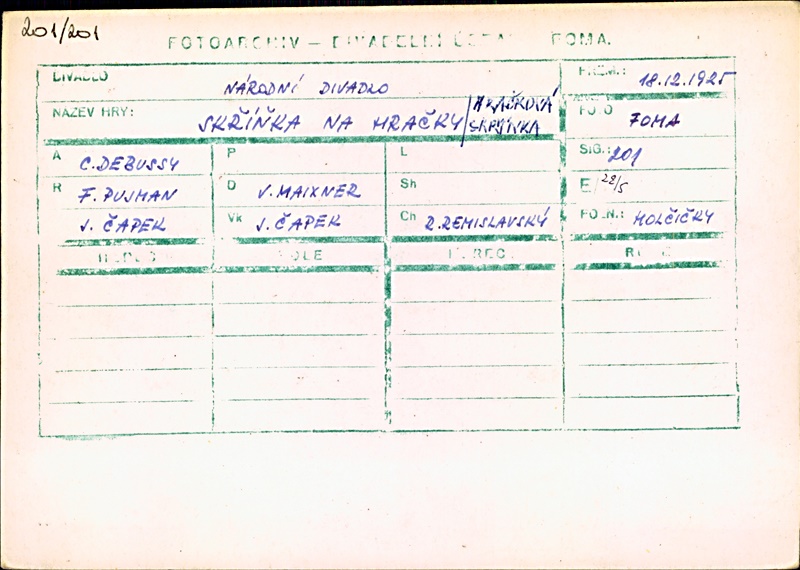 201/201
FOTOARCHIV – DIVADELNÍ ÚSTAV FOMA.
DIVADLO NÁRODNÍ DIVADLO PREM.: 18.12.1925
NÁZEV HRY: SKŘÍŇKA NA HRAČKY/HRAČKOVÁ SKŘÍŇKA FOTO FOMA
A C. DEBUSSY P L SIG.: 201
R F. PUJMAN D V. MAIXNER Sh E/28/5
J. ČAPEK Vk J. ČAPEK Ch R. REMISLAVSKÝ POZN.: HOLČIČKY
HEREC ROLE HEREC ROLE